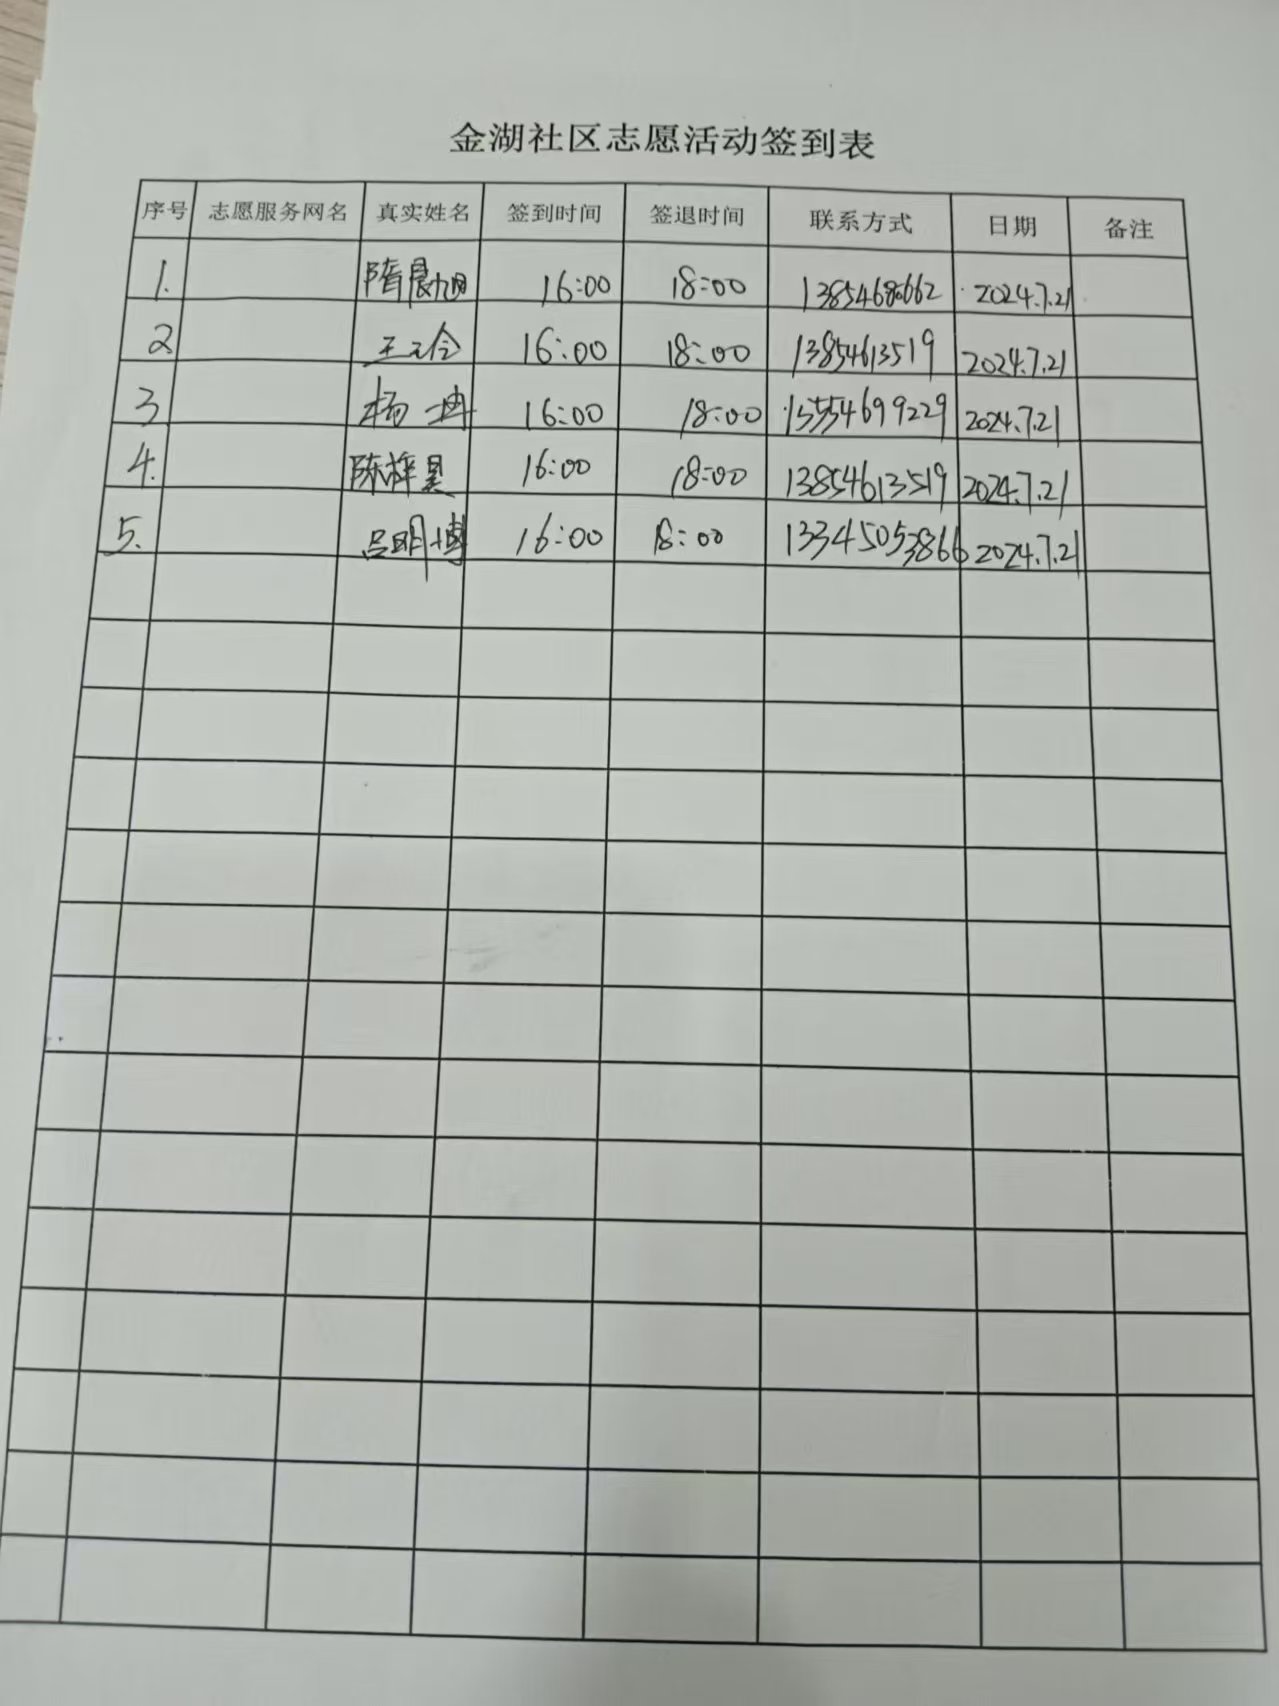 金湖社区志愿活动签到表
序号 志愿服务网名 真实姓名 签到时间 签退时间 联系方式 日期 备注
1. 隋晨旭 16:00 18:00 13854680662 2024.7.21
2 王元令 16:00 18:00 13854613519 2024.7.21
3 杨冉 16:00 18:00 15554699229 2024.7.21
4. 陈梓昊 16:00 18:00 13854613519 2024.7.21
5. 吕明博 16:00 18:00 13345053866 2024.7.21